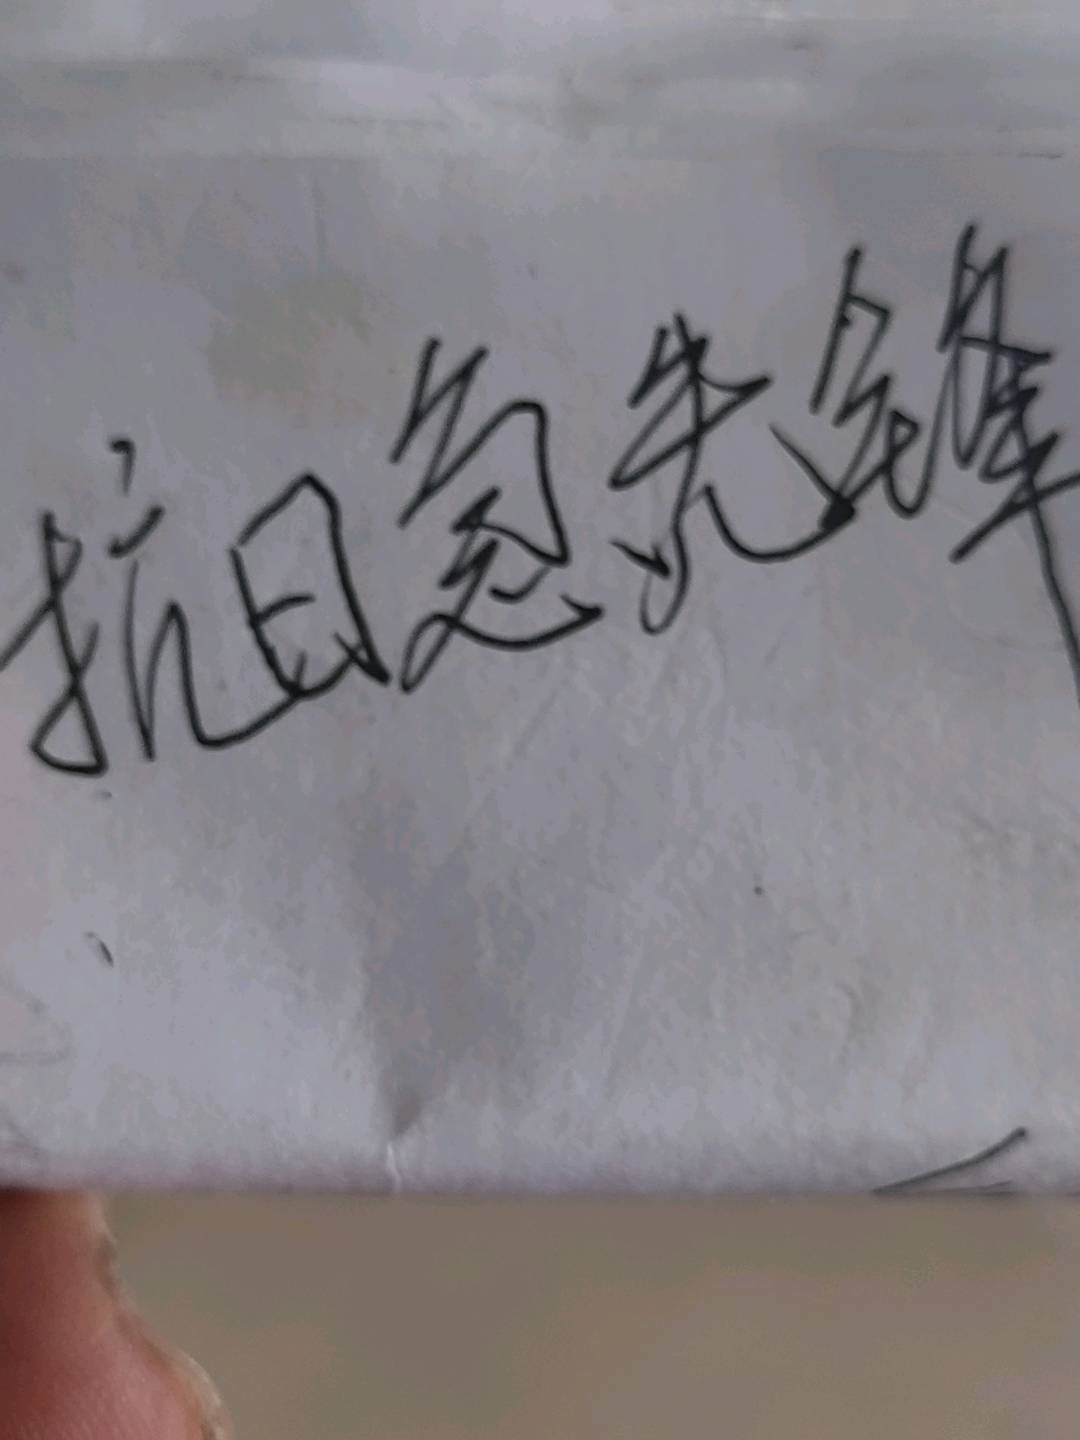 抗日急先锋